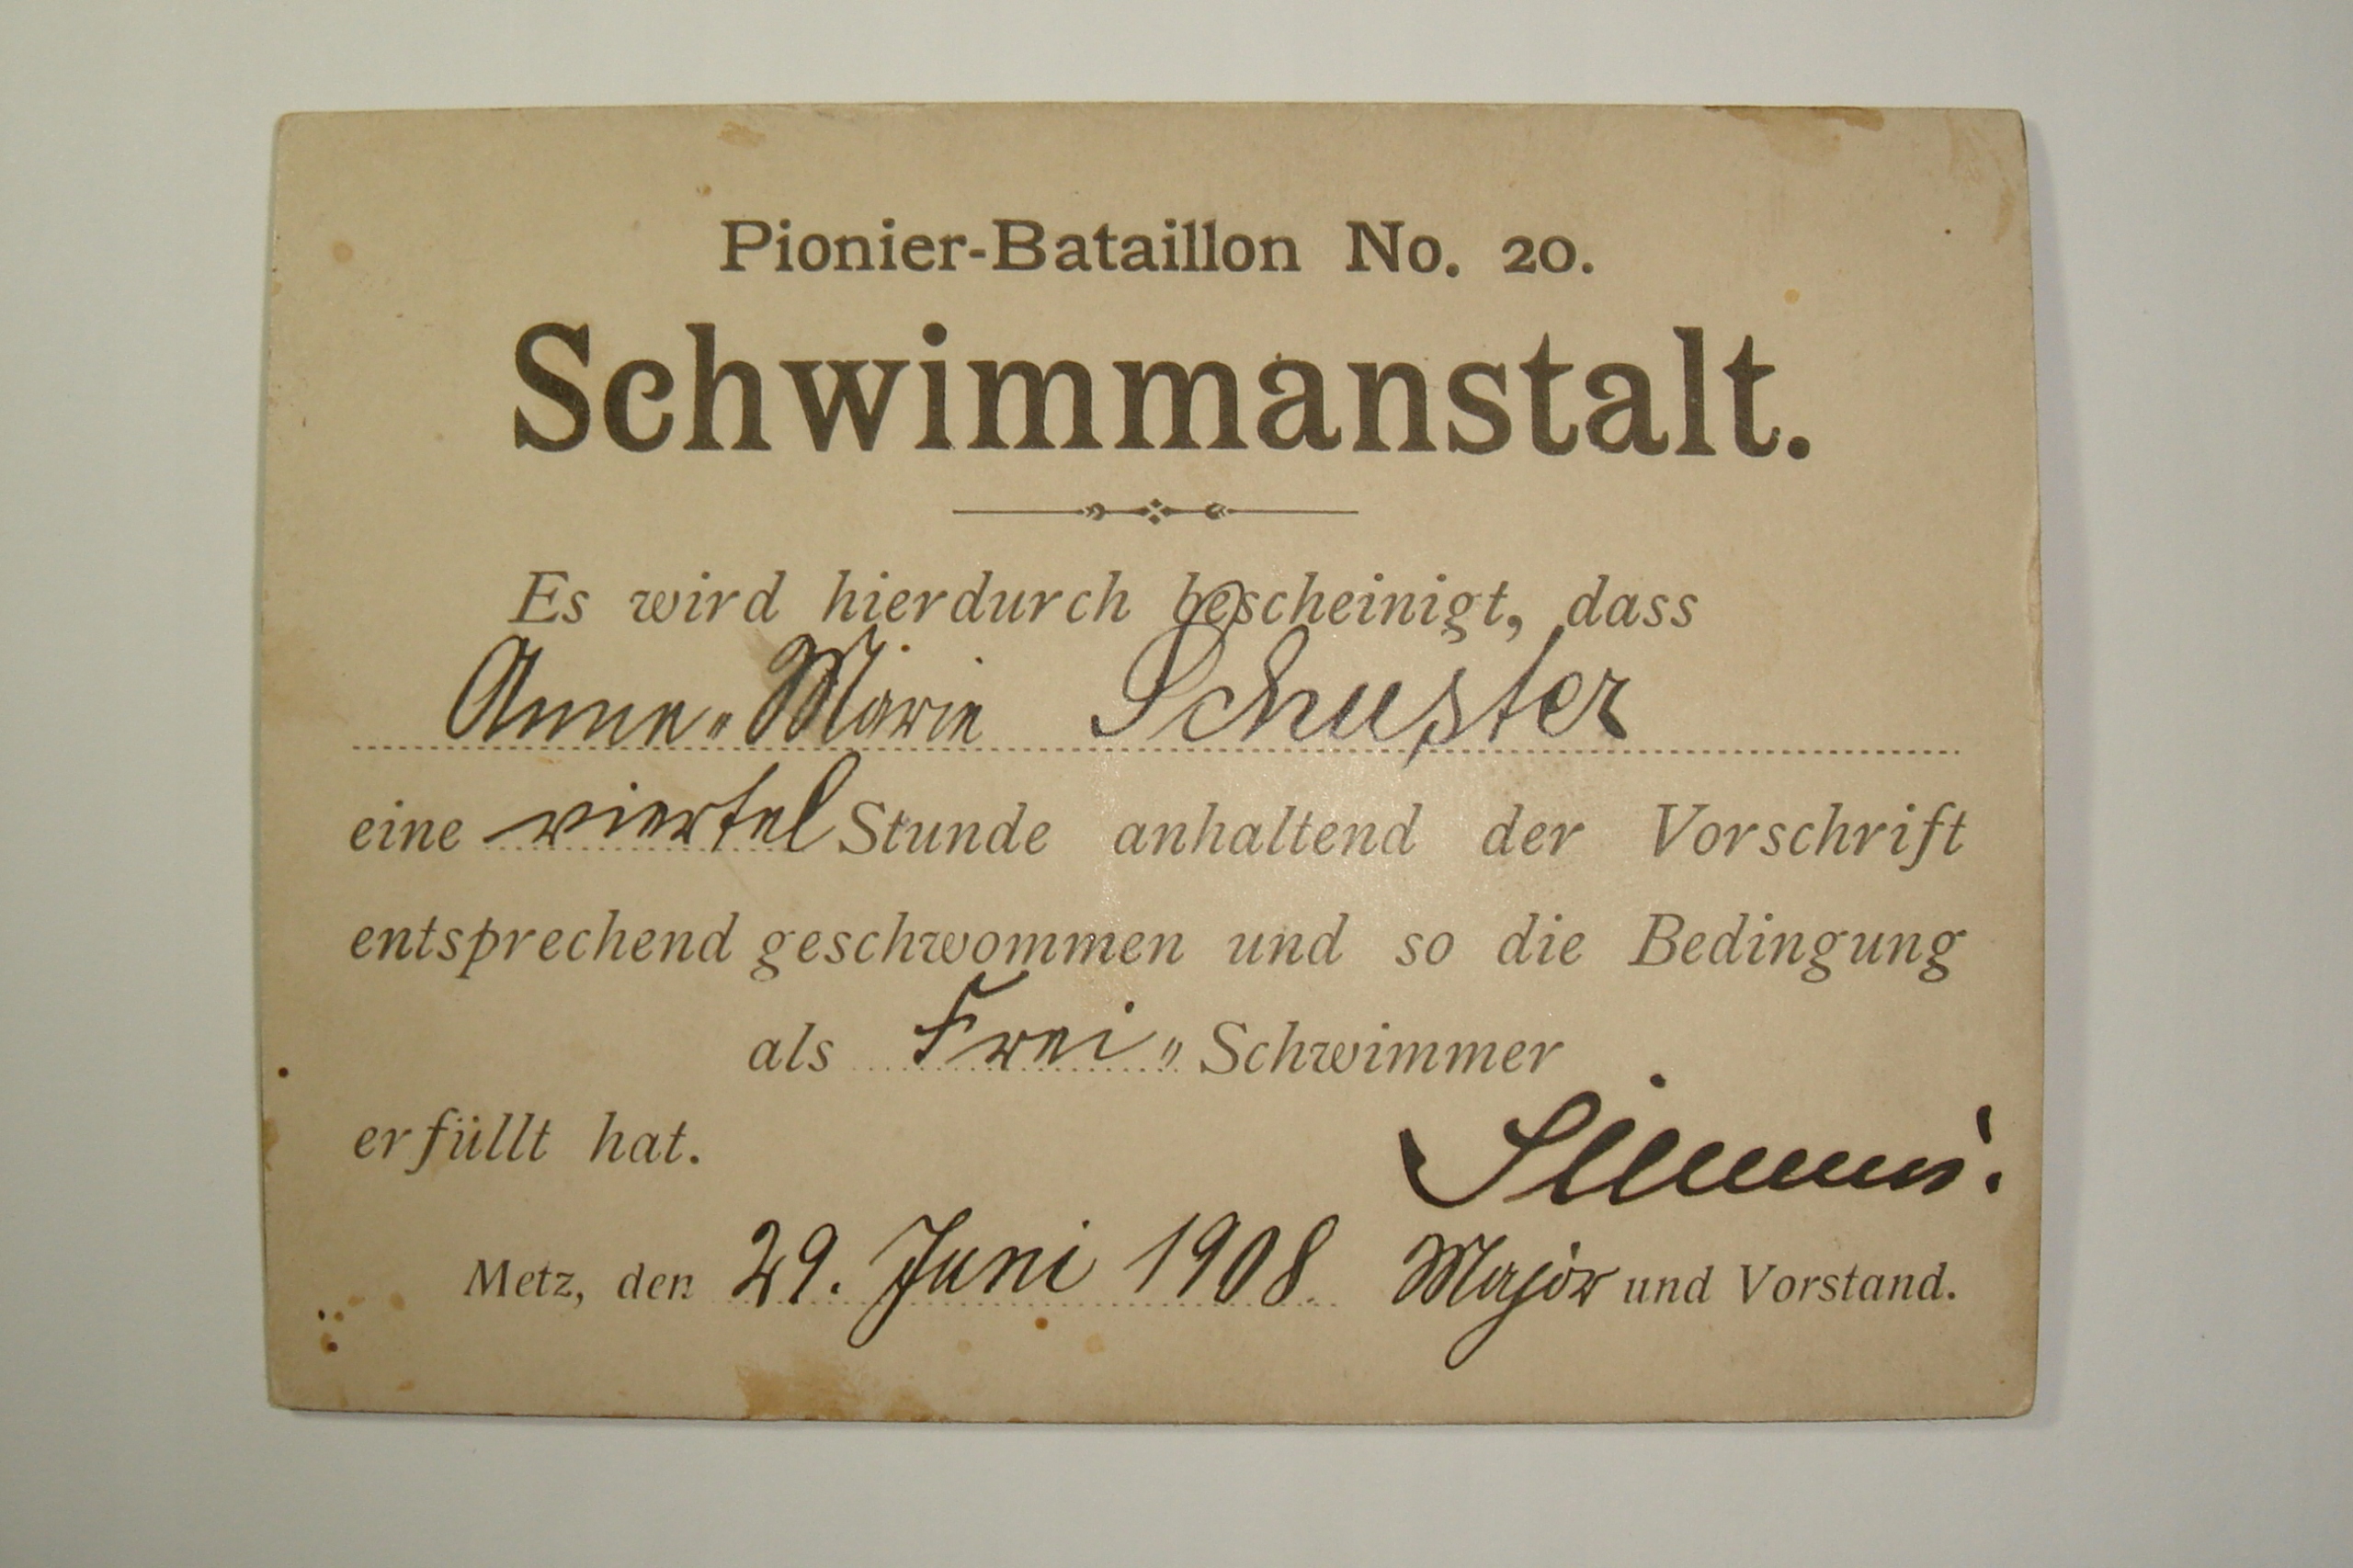 Pionier-Bataillon No. 20.
Schwimmanstalt.
Es wird hierdurch bescheinigt, dass
Anne-Marie Schuster
eine viertel Stunde anhaltend der Vorschrift
entsprechend geschwommen und so die Bedingung
als Frei-Schwimmer
erfüllt hat.
Metz, den 29. Juni 1908. Major und Vorstand.